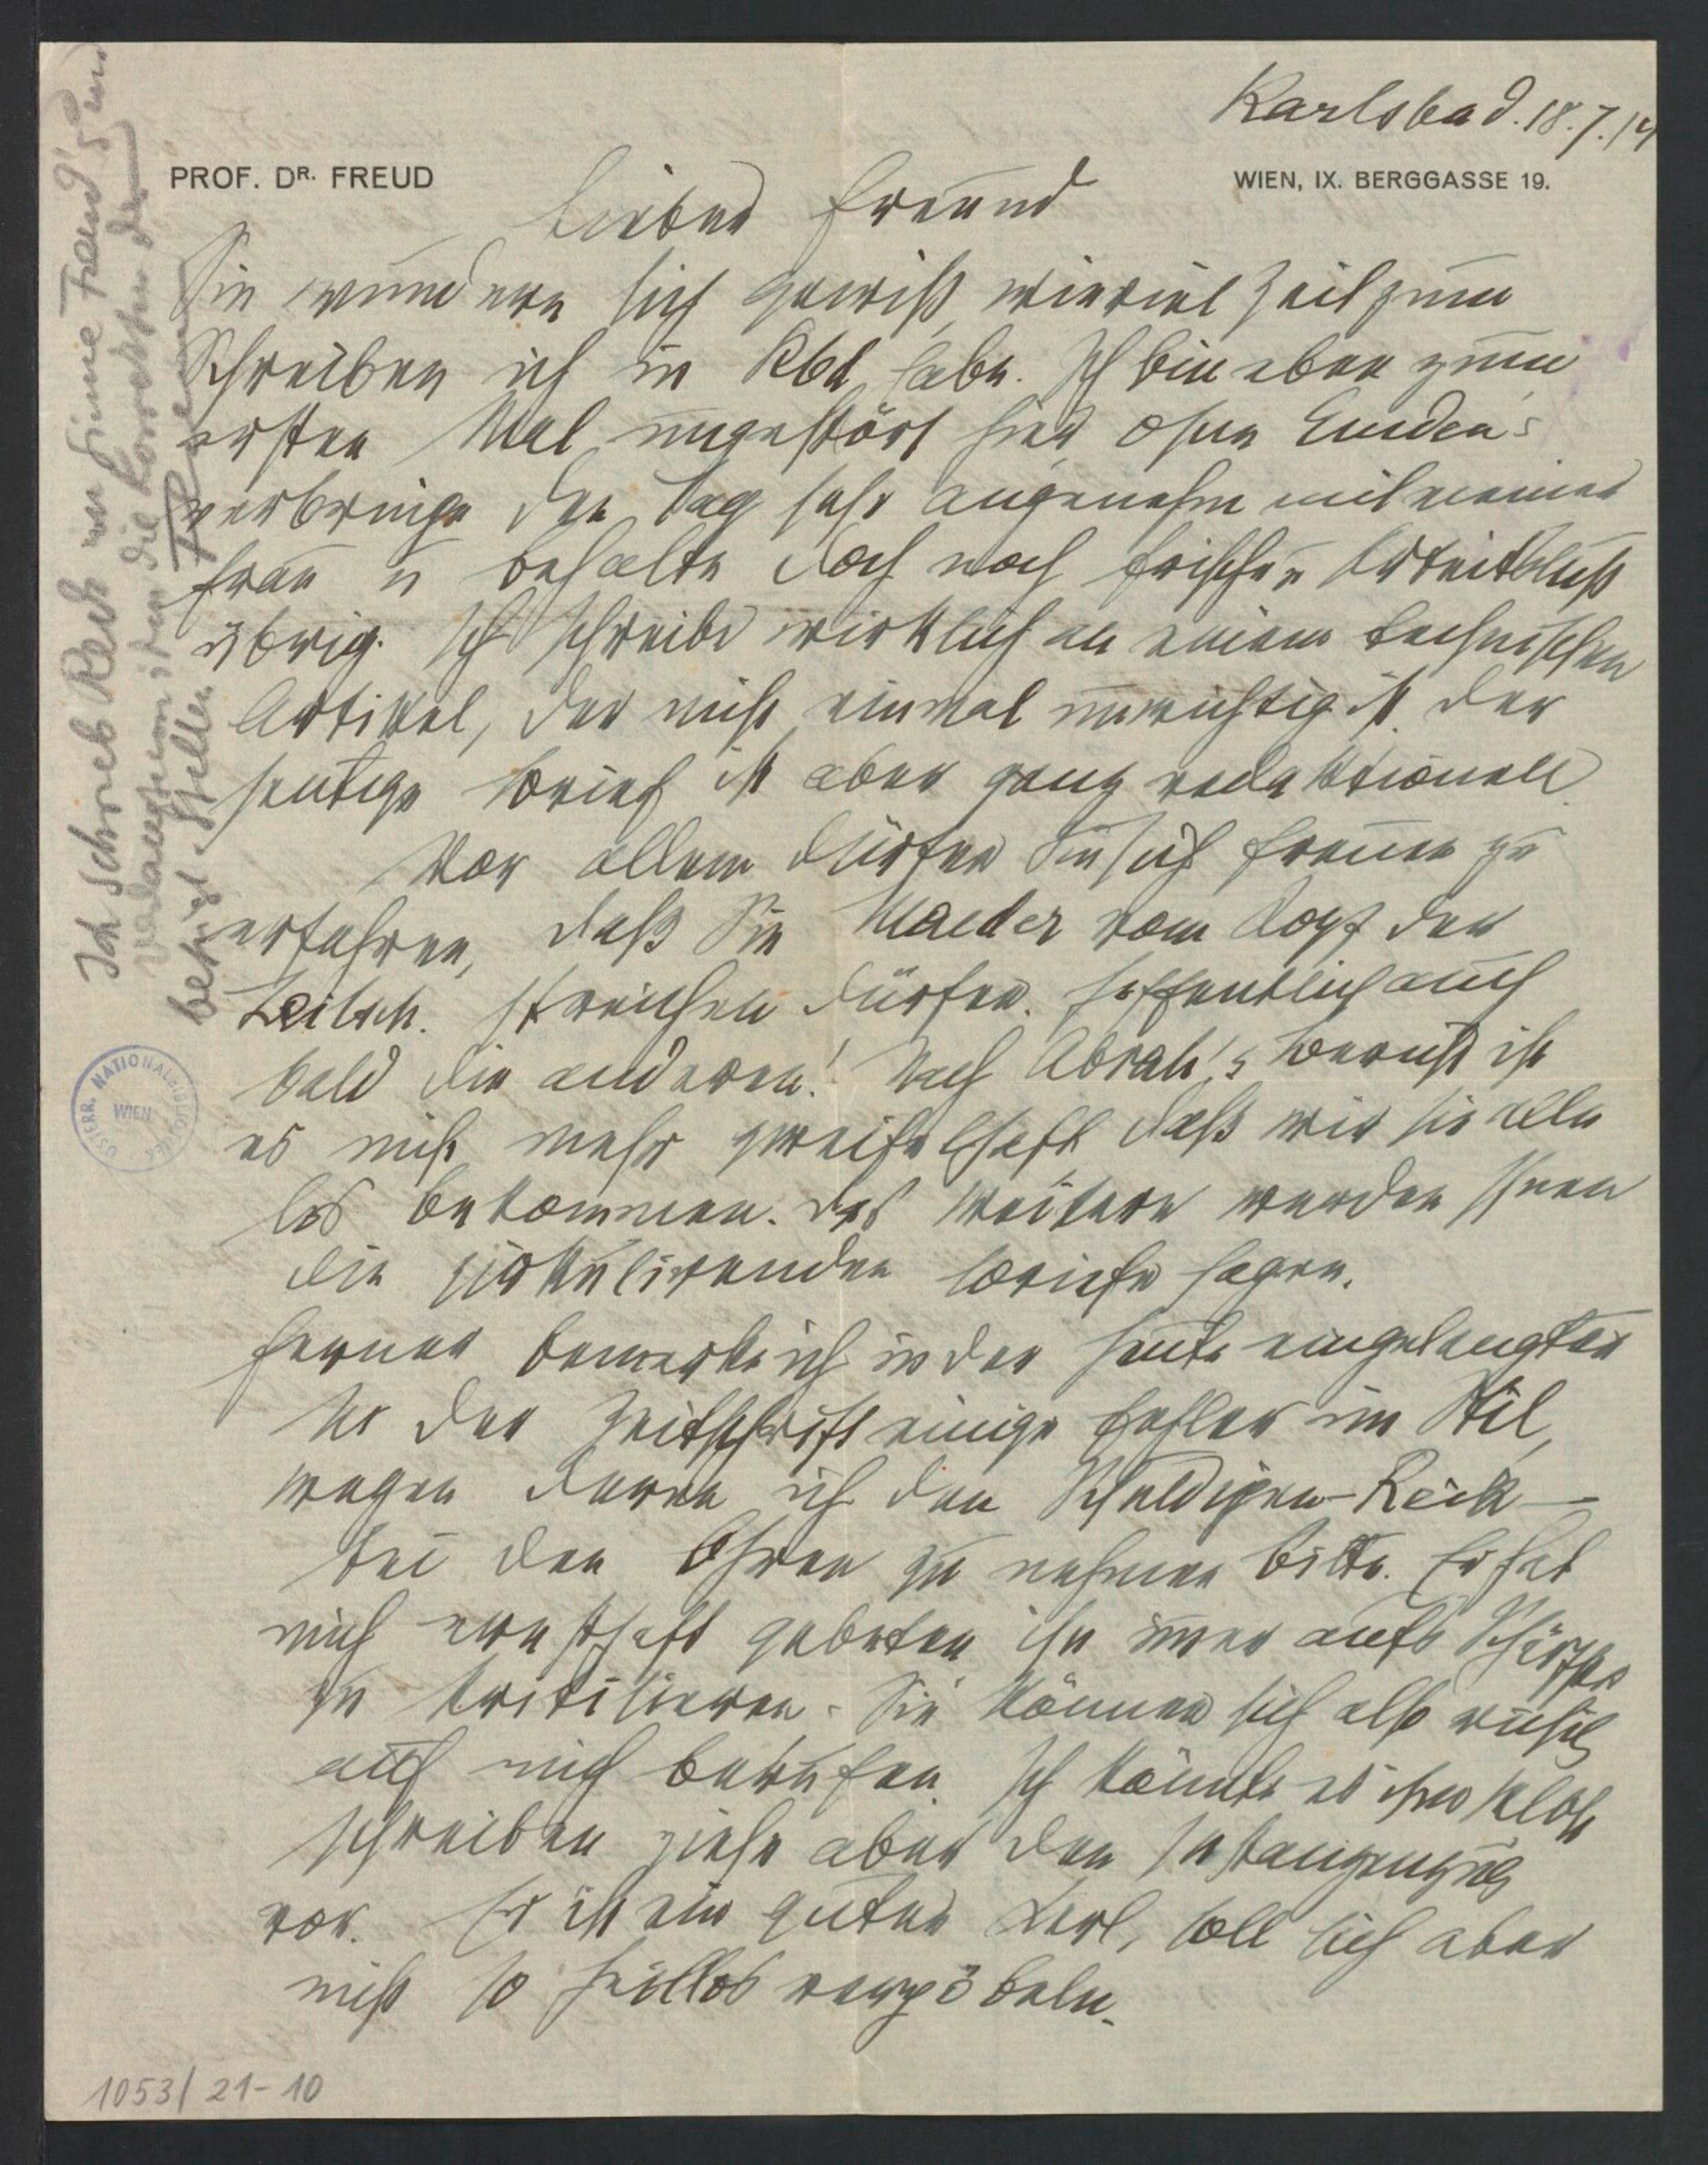 Karlsbad. 18.7.14
PROF. DR. FREUD
WIEN, IX. BERGGASSE 19.
Lieber Freund
Sie wundern sich gewiß, wieviel Zeit zum
Schreiben ich in Kbd habe. Ich bin eben zum
ersten Mal ungestört hier ohne Emden
verbringe den Tag sehr angenehm mit meiner
Frau u behalte doch noch frische Arbeitslust
übrig. Ich schreibe wirklich an einem technischen
Artikel, der nicht einmal unwichtig ist. Der
heutige Brief ist aber ganz redaktionell
Vor allem dürfen Sie sich freuen zu
erfahren, daß Sie Maeder vom Kopf der
Zeitsch. streichen dürfen. Hoffentlich auch
bald die anderen! Nach Abrah's Bericht ist
es nicht mehr zweifelhaft daß wir sie alle
los bekommen. Das Weitere werden Ihnen
die zirkulirenden Briefe sagen.
Ferner bemerke ich in der heute eingelangten
Nr der Zeitschrift einige Fehler im Stil,
wegen deren ich den Schuldigen – Reik –
bei den Ohren zu nehmen bitte. Er hat
mich ernsthaft gebeten ihn immer aufs Schärfste
zu kritisieren. Sie können sich also ruhig
auf mich berufen. Ich könnte es ihm selbst
schreiben ziehe aber den Instanzenzug
vor. Er ist ein guter Kerl, soll sich aber
nicht so stillos verpöbeln.
Ich schrieb Reik im Sinne Freud's und
verlangte die Korrektur der
betr. Stellen
1053/21-10
ÖSTERR. NATIONALBIBLIOTHEK
WIEN